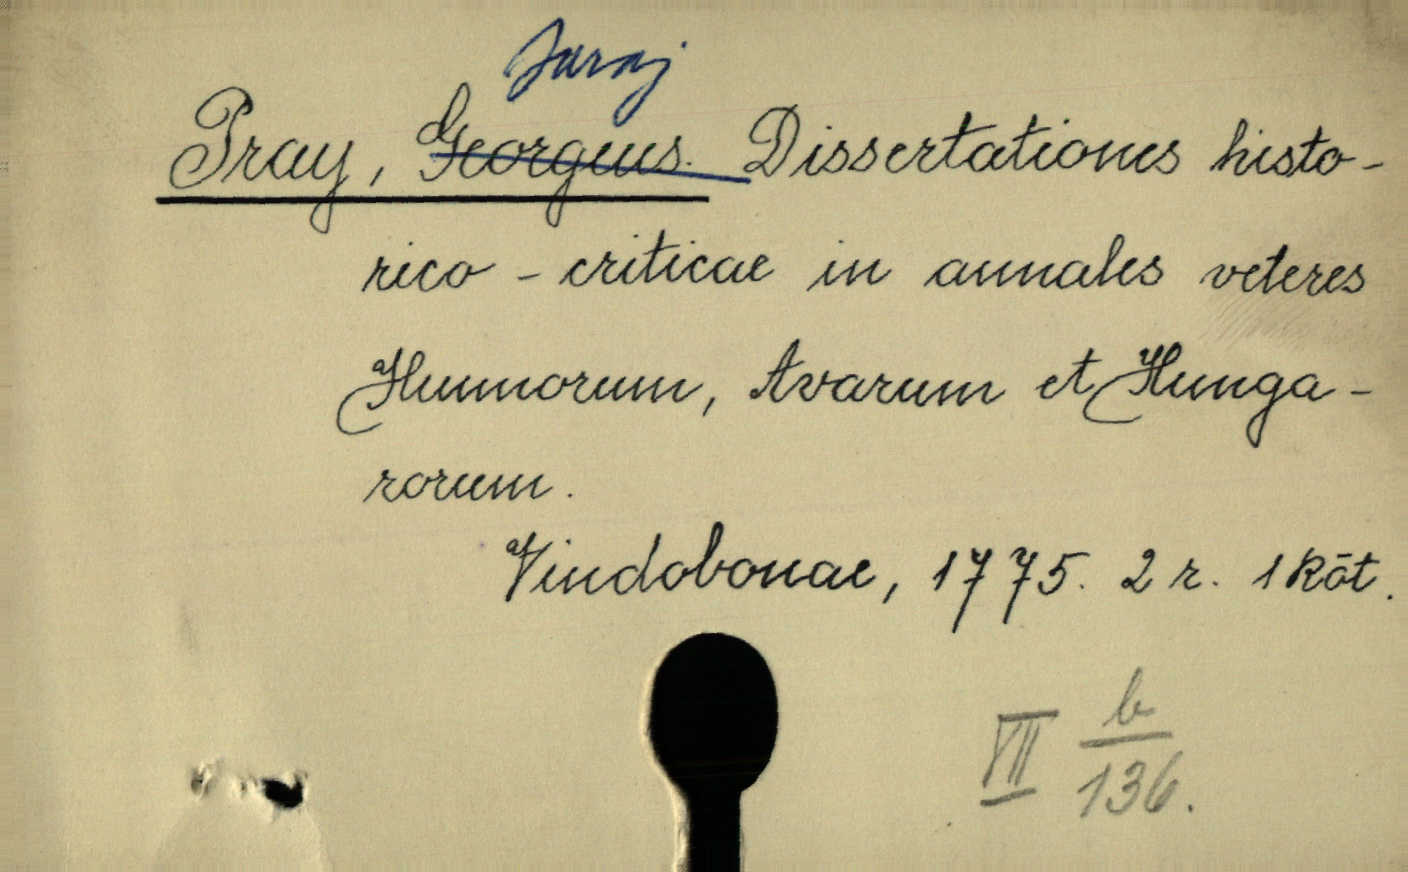 Juraj
Pray, Georgius. Dissertationes histo-
rico-criticae in annales veteres
Hunnorum, Avarum et Hunga-
rorum.
Vindobonae, 1775. 2 r. 1 Köt.
VII b/136.